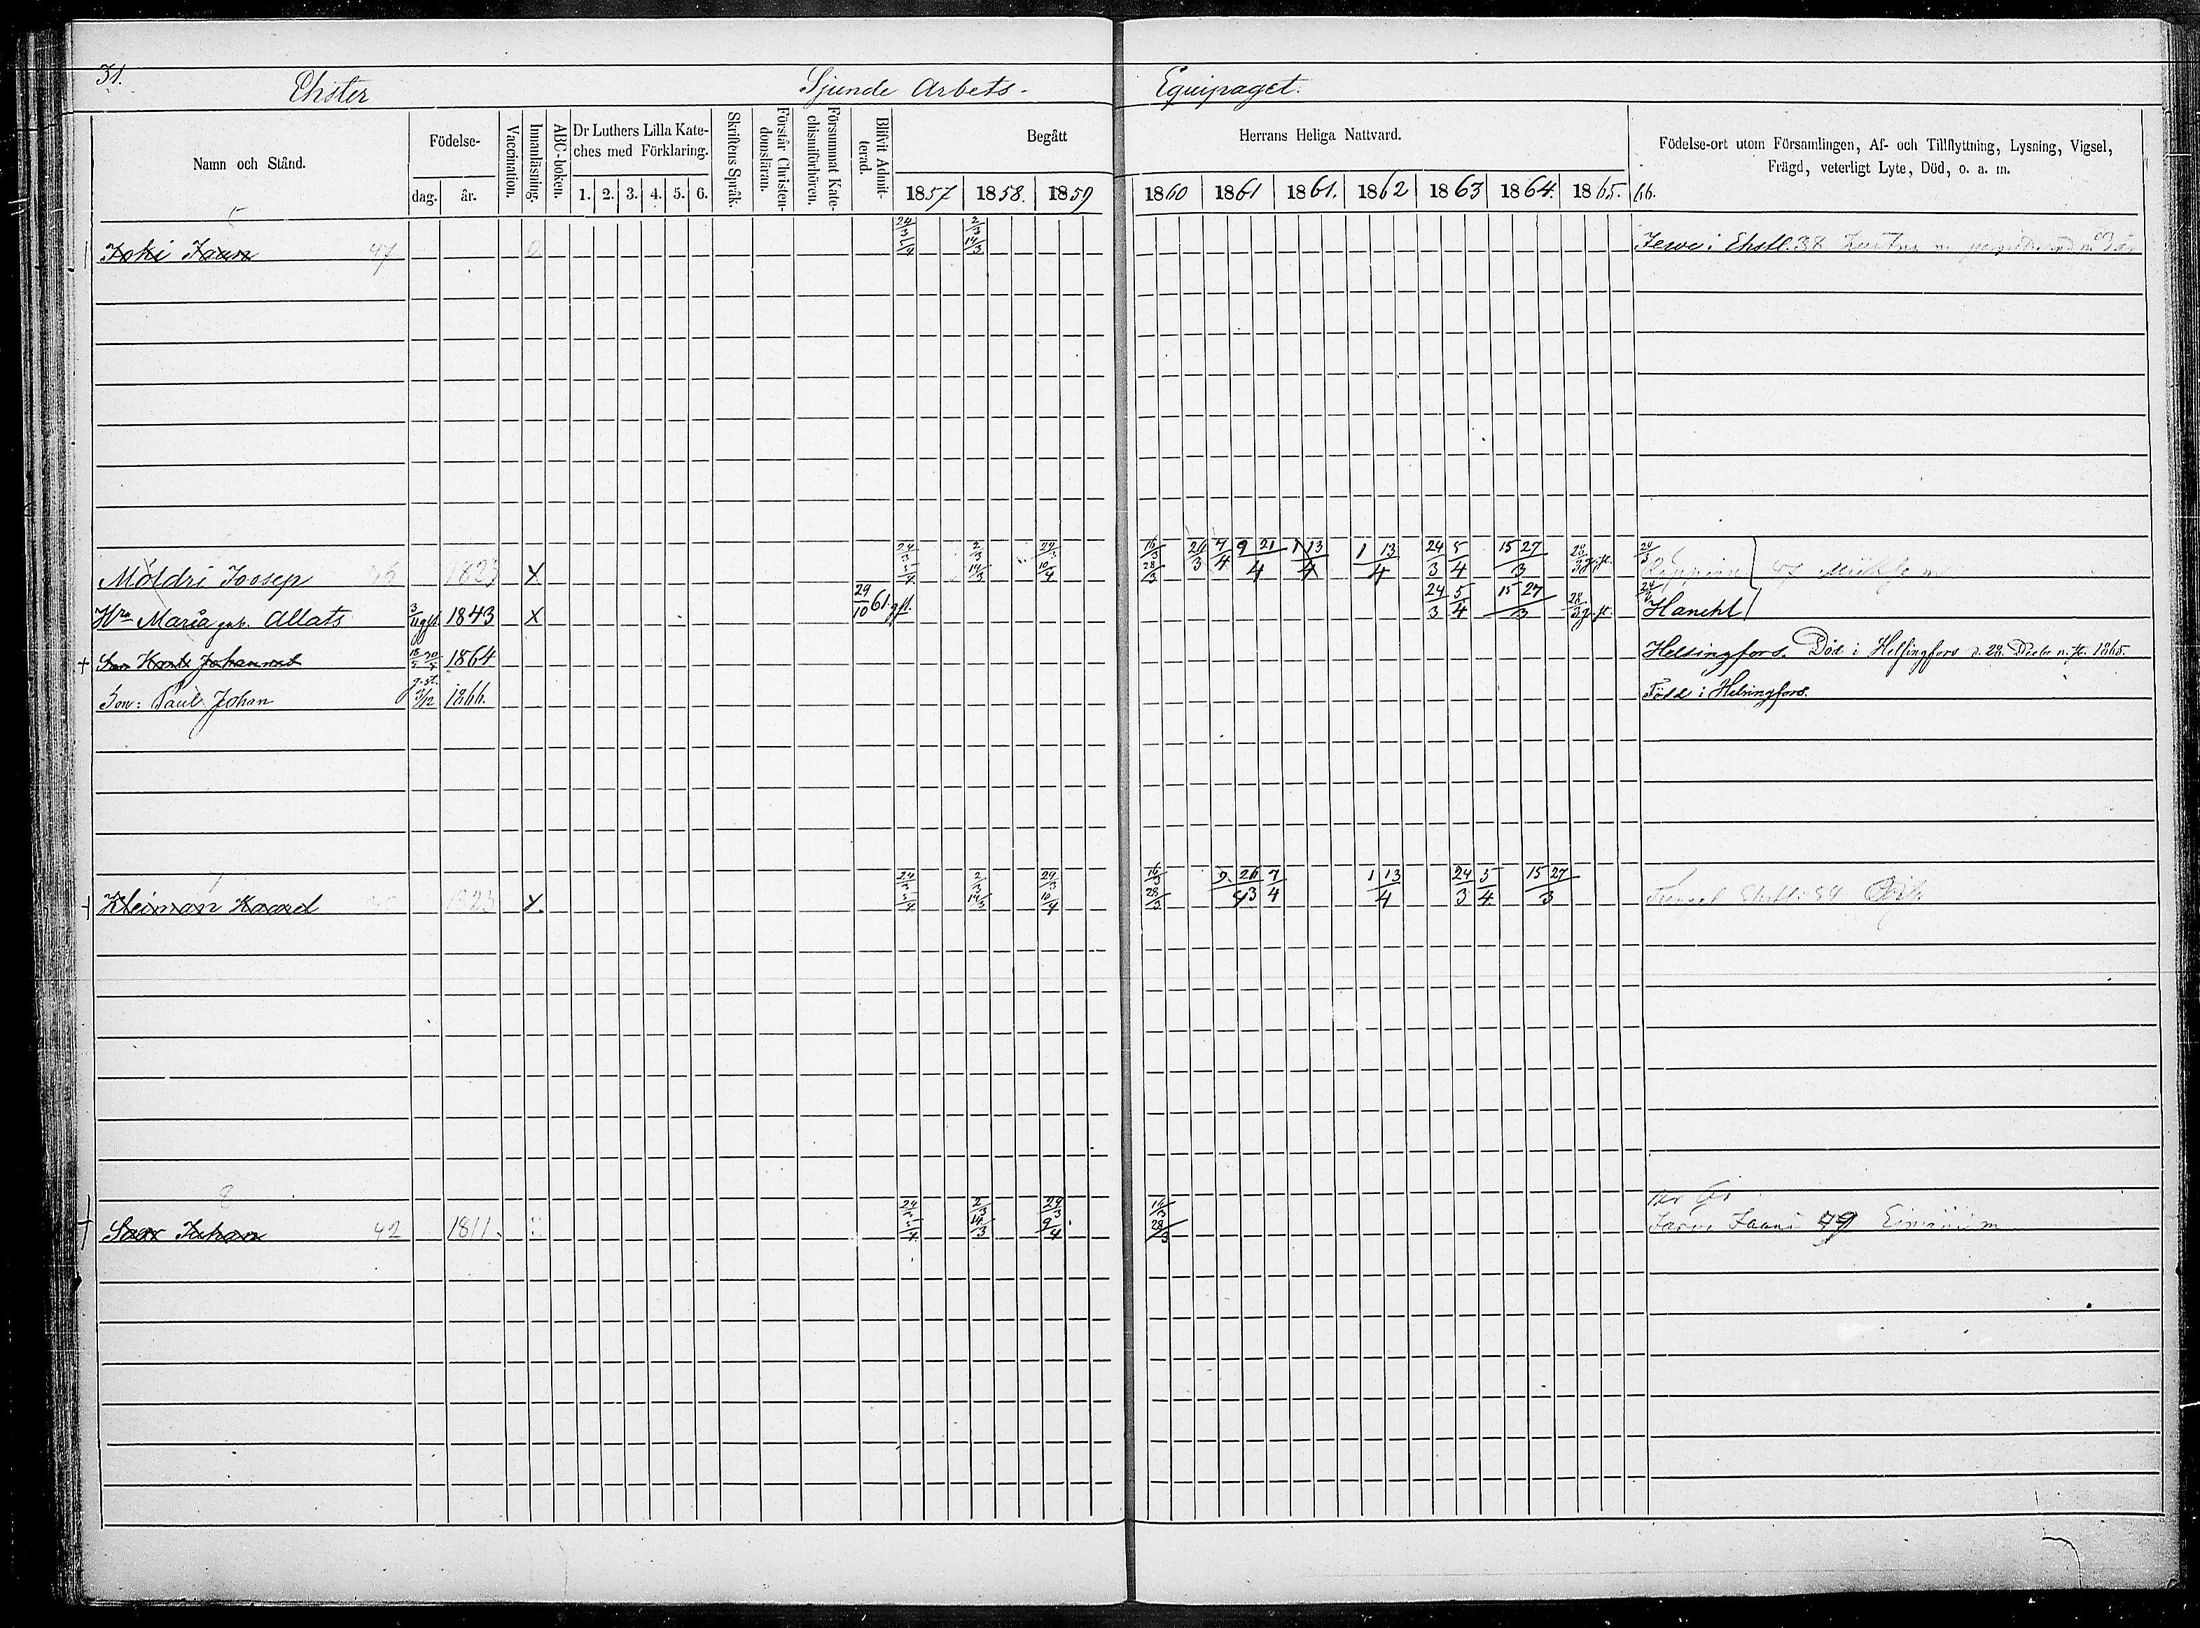 31.
Ehster Sjunde Arbets- Equipaget.
Namn och Stånd. Födelse- dag. år. Vaccination. Innanläsning. ABC-boken. Dr Luthers Lilla Kateches med Förklaring. 1. 2. 3. 4. 5. 6. Skriftens Språk. Förstår Christendomsläran. Försummat Katechismiförhören. Blifvit Admitterad. Begått Herrans Heliga Nattvard.
1857 1858. 1859 1860 1861 1861. 1862 1863 1864. 1865. 66.
Födelse-ort utom Församlingen, Af- och Tillflyttning, Lysning, Vigsel,
Frägd, veterligt Lyte, Död, o. a. m.
5
Joki Jaan 47 24/3 5/4 2/3 14/3 Jewe i Ehstl. 38
Möldri Joosep 1823 X 24/3 5/4 2/3 14/3 29/3 10/4 16/3 28/3 26/3 7/4 9 21/4 1 13/4 1 13/4 24/3 5/4 15 27/3 28/3 g. st. 24/3
Hru Maria geb. Allats 3/11 gst. 1843 X 29/10 61. gst. 24/3 5/4 15 27/3 28/3 g. st. Hanehl
+ Son Karl Johannes 18/5 30/5 1864 Helsingfors. Död i Helsingfors d. 28. Decbr n. st. 1865.
Son: Paul Johan g. st. 3/12 1866. Född i Helsingfors.
+ Kleiman Kaarel 1823 X. 24/3 5/4 2/3 14/3 29/3 10/4 16/3 28/3 9. 26/3 7/4 1 13/4 24/3 5/4 15 27/3
8
+ Saar Juhan 42 1811. 24/3 5/4 2/3 14/3 29/3 9/4 16/3 28/3 79